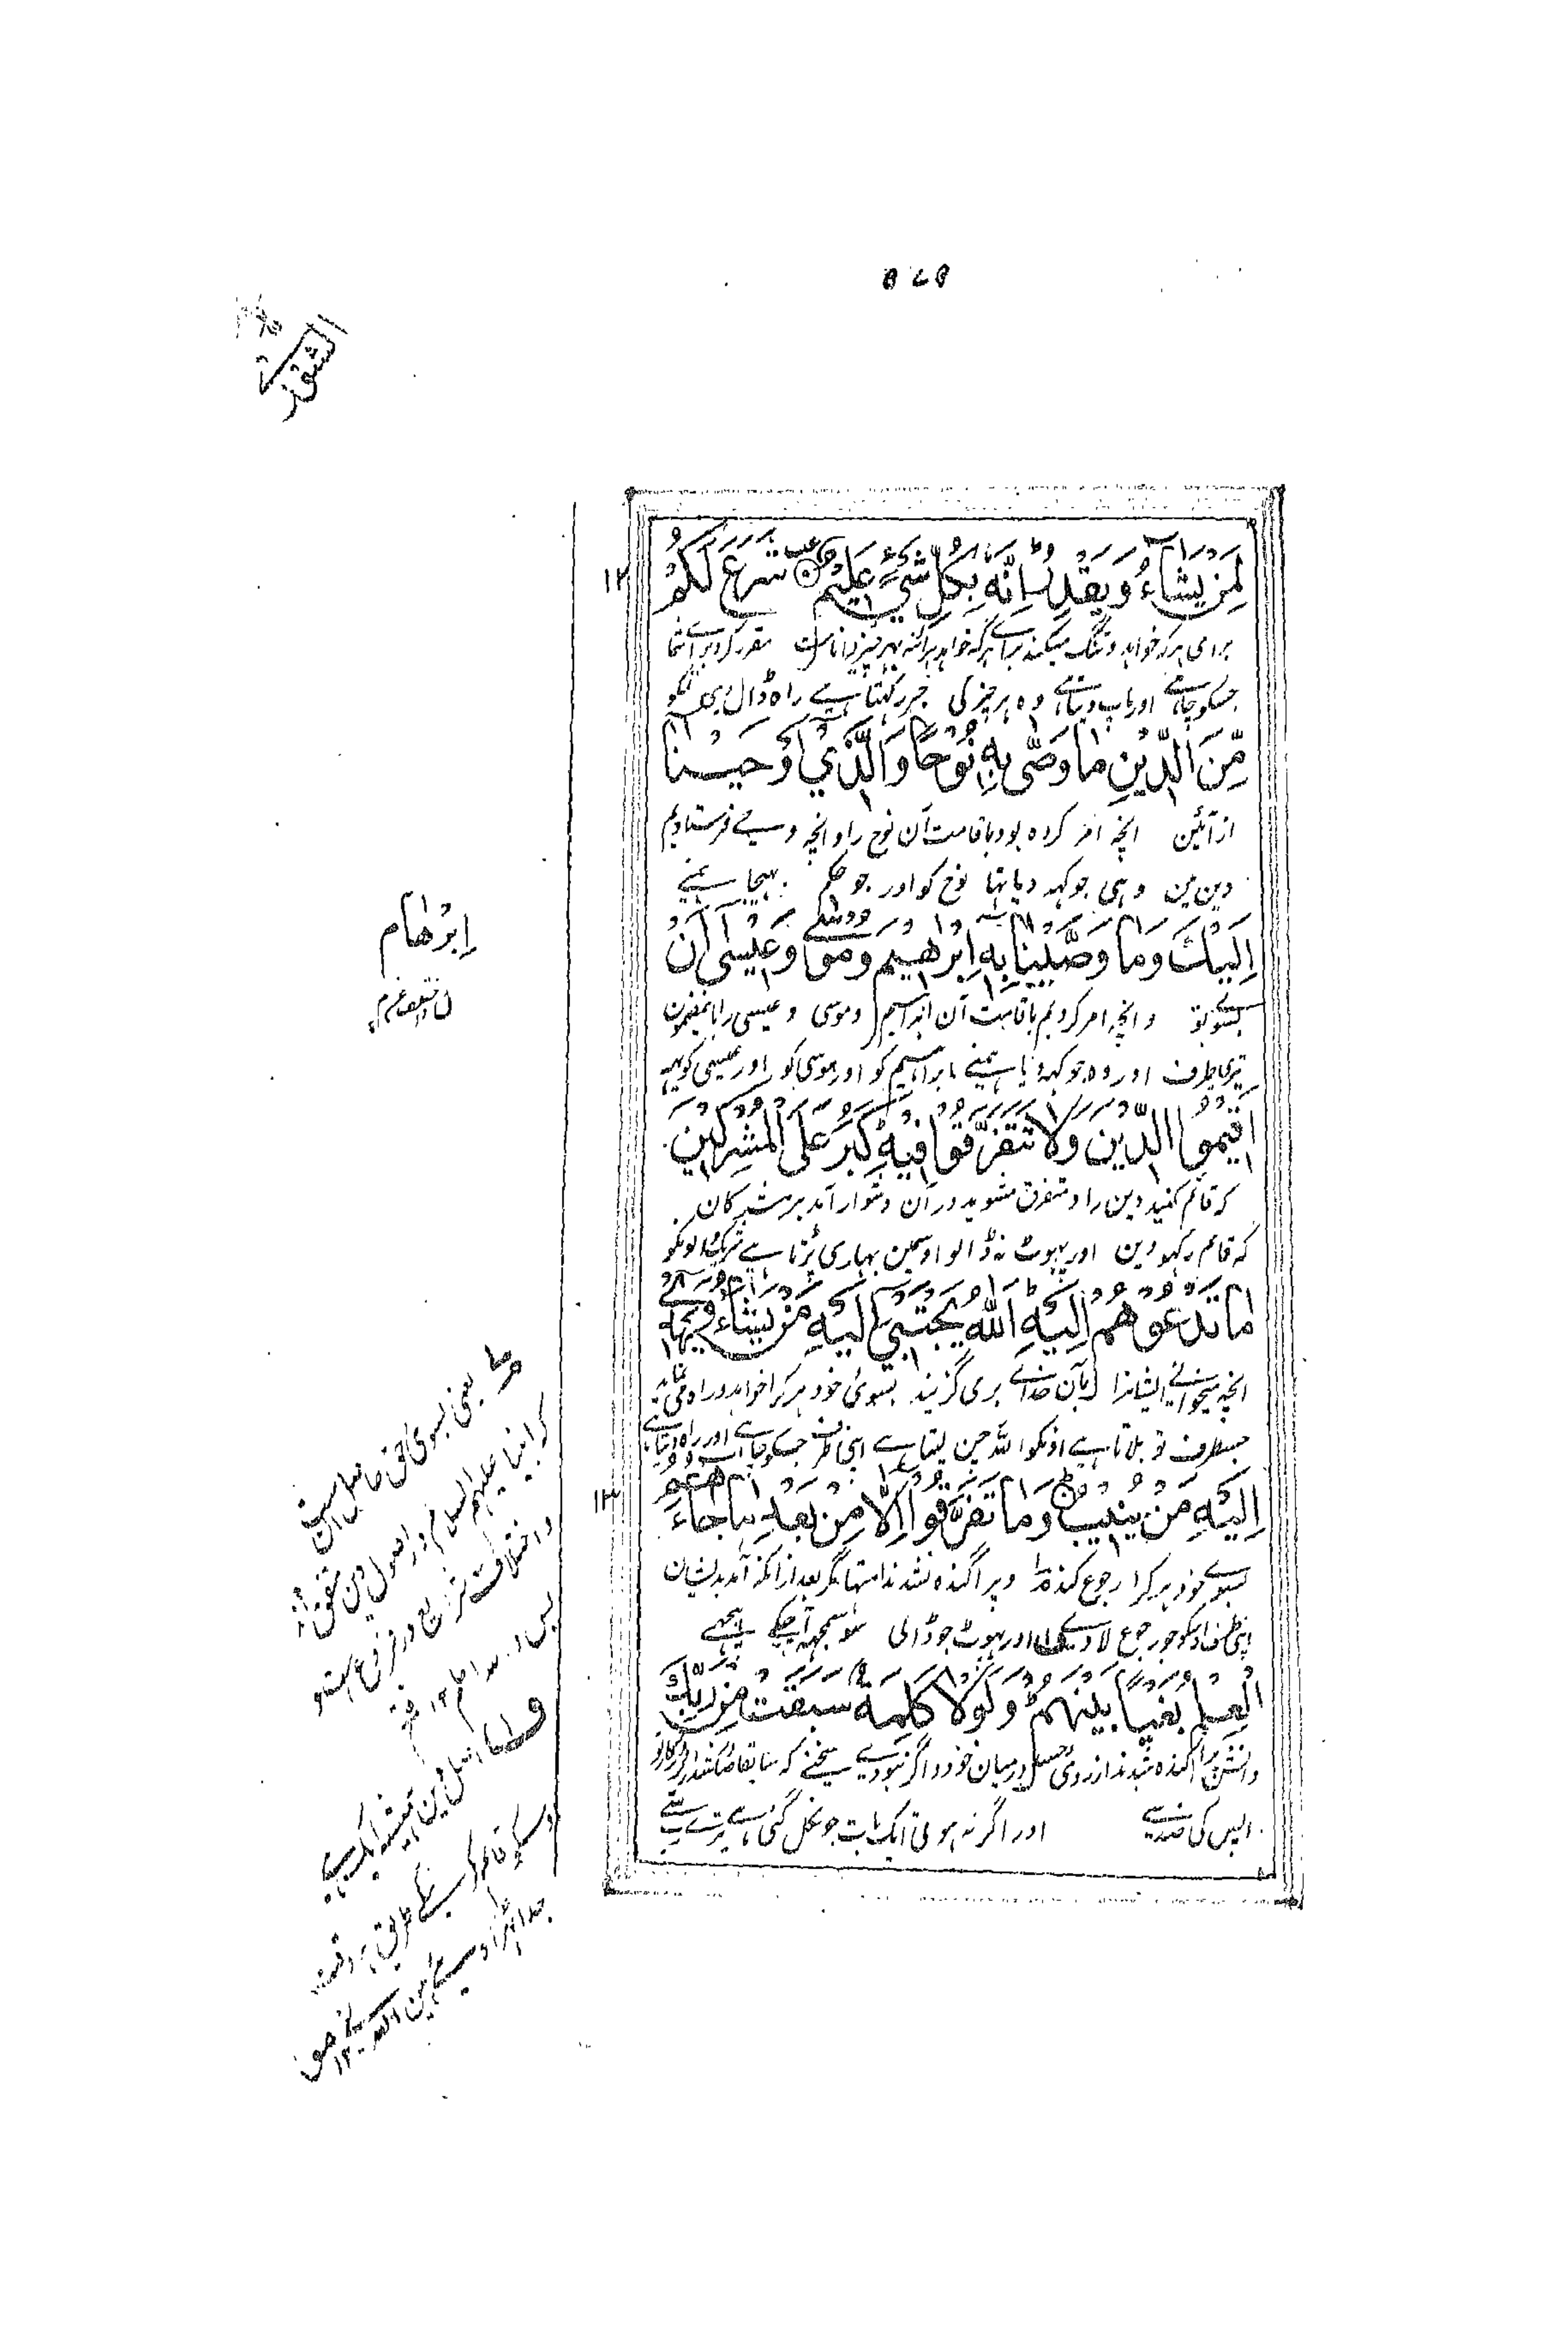 الشورٰے
لِمَنْ يَّشَآءُ وَيَقْدِرُ ؕ اِنَّهٗ بِكُلِّ شَيْءٍ عَلِيْمٌ ۝ شَرَعَ لَكُمْ
۱۲
برای هرکه خواهد و تنگ میکند برای هرکه خواهد هر آئنه بهر چیز دانا ست مقرر کرد برای شما
جسکو چاہے اور ماپ دیتا ہے وہ ہر چیز کی خبر رکہتا ہے راہ ڈال دی تمکو
مِّنَ الدِّيْنِ مَا وَصّٰى بِهٖ نُوْحًا وَّالَّذِيْٓ اَوْحَيْنَآ
از آئین انچه امر کرده بود باقامت آن نوح را و انچه وحی فرستادیم
دین مین وہی جو کہہ دیا تہا نوح کو اور جو حکم بہیجا ہمنے
اِلَيْكَ وَمَا وَصَّيْنَا بِهٖٓ اِبْرٰهِيْمَ وَمُوْسٰى وَعِيْسٰٓى اَنْ
اِبْرٰهَام
بسوی تو و انچه امر کردیم باقامت آن ابراهیم و موسی و عیسی را باینمضمون
تیری طرف اور وہ جو کہہ دیا ہمنے ابراہیم کو اور موسی کو اور عیسی کو یہہ
اَقِيْمُوا الدِّيْنَ وَلَا تَتَفَرَّقُوْا فِيْهِ ؕ كَبُرَ عَلَى الْمُشْرِكِيْنَ
که قائم کنید دین را و متفرق مشوید در آن دشوار آمد بر مشرکان
کہ قائم رکہو دین اور پہوٹ نہ ڈالو اوسمین بہاری پڑتا ہے شرک والونکو
مَا تَدْعُوْهُمْ اِلَيْهِ ؕ اَللّٰهُ يَجْتَبِيْٓ اِلَيْهِ مَنْ يَّشَآءُ وَيَهْدِيْٓ
انچه میخوانی ایشانرا بآن خدای بر می گزیند بسوئ خود هر کرا خواهد و راه می نماید
جسطرف تو بلاتا ہے اونکو اللہ چن لیتا ہے اپنی طرف جسکو چاہے اور راہ دیتا ہے
اِلَيْهِ مَنْ يُّنِيْبُ ۝ وَمَا تَفَرَّقُوْٓا اِلَّا مِنْۢ بَعْدِ مَا جَآءَهُمُ
۱۳
بسوی خود هر کرا رجوع کند و پراگنده نشدند امتها مگر بعد ازانکه آمد بدیشان
اپنی طرف اوسکو جو رجوع لاوے اور پہوٹ جو ڈالی سو سمجہہ آ چکے پیچہے
الْعِلْمُ بَغْيًۢا بَيْنَهُمْ ؕ وَلَوْلَا كَلِمَةٌ سَبَقَتْ مِنْ رَّبِّكَ
دانش پراگنده شدند از روی حسد درمیان خود و اگر نبودے سخنے که سابقا صادر شد از پروردگار تو
آپس کی ضد سے اور اگر نہ ہوتی ایک بات جو نکل گئی ہے تیرے رب سے
یعنی بسوی حق حاصل آن است
که انبیا علیهم السلام در اصول دین متفق اند
و اختلاف شرایع در فروع است و
بس
ف اصل دین ہمیشہ ایک ہے